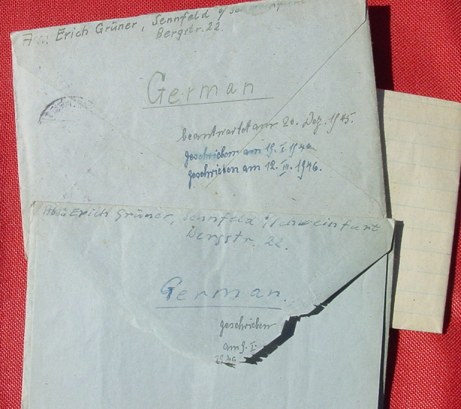 Erich Grüner, Sennfeld
Bergstr. 22.
German
beantwortet am 20. Dez. 1945.
geschrieben am
geschrieben am 12. 1946.
Erich Grüner, Sennfeld b/Schweinfurt
Bergstr. 22.
German
geschrieben
am 9.